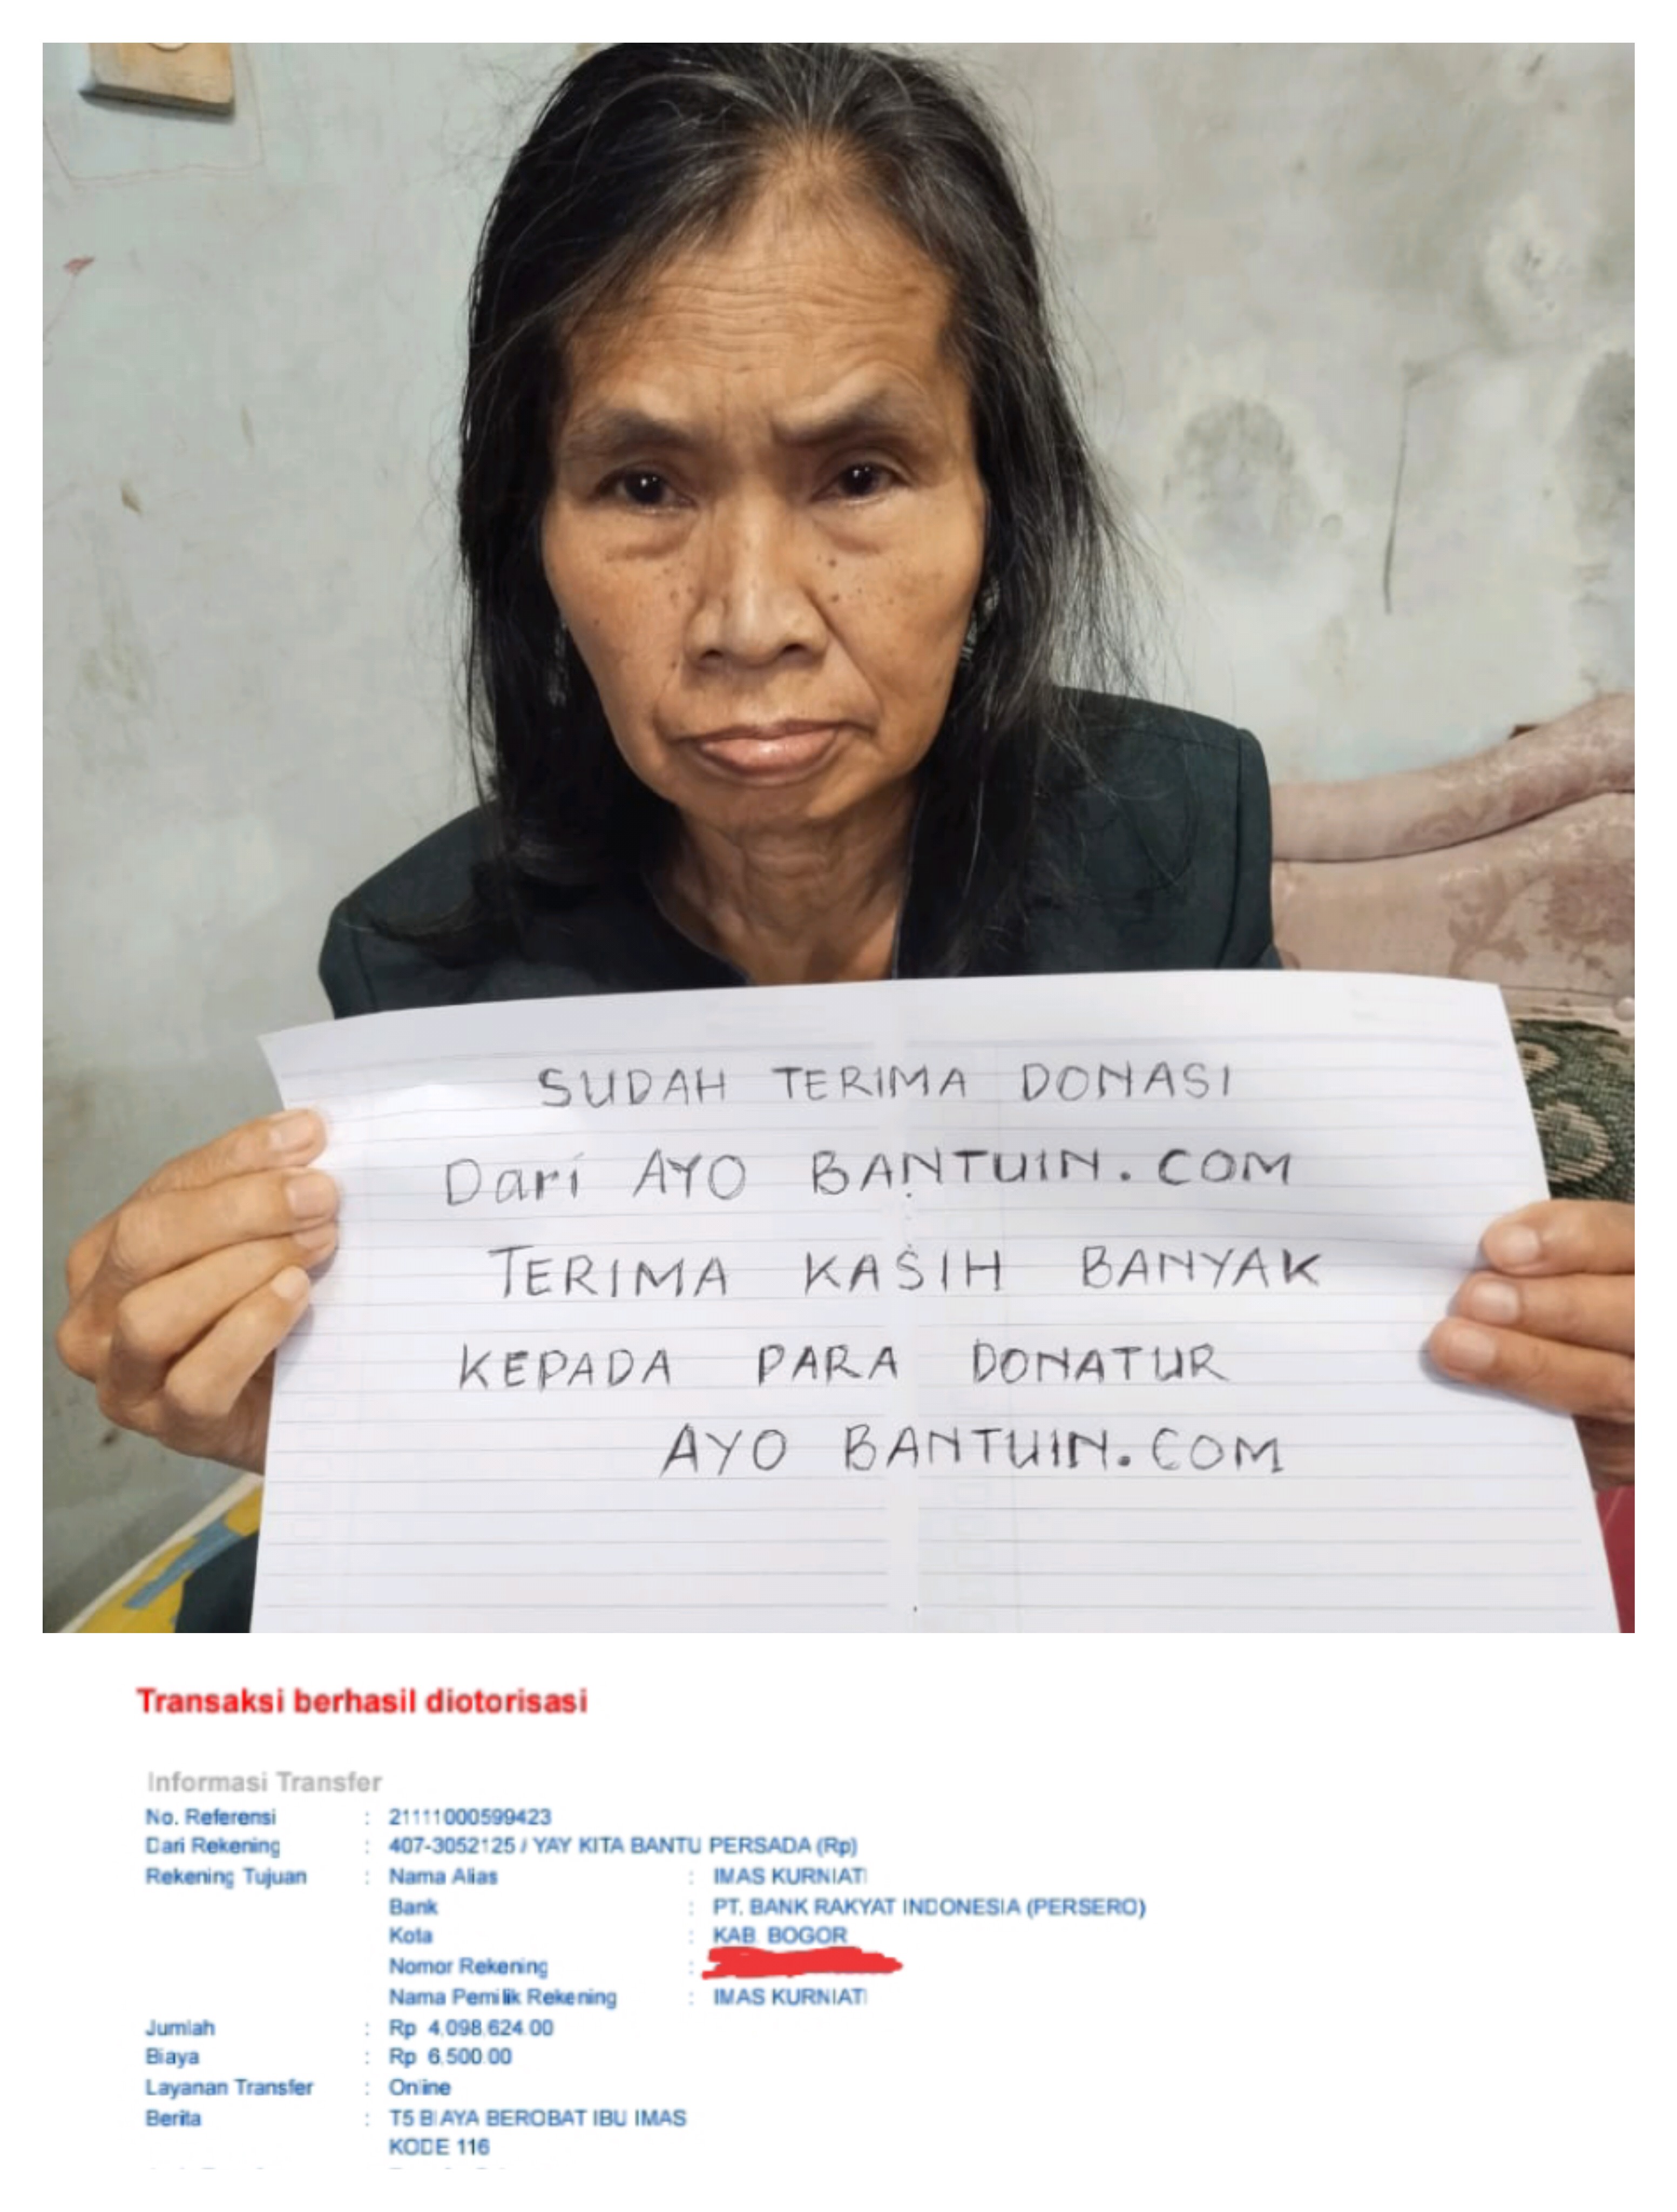 SUDAH TERIMA DONASI
Dari AYO BANTUIN.COM
TERIMA KASIH BANYAK
KEPADA PARA DONATUR
AYO BANTUIN.COM
Transaksi berhasil diotorisasi
Informasi Transfer
No. Referensi : 21111000599423
Dari Rekening : 407-3052125 / YAY KITA BANTU PERSADA (Rp)
Rekening Tujuan : Nama Alias : IMAS KURNIATI
Bank : PT. BANK RAKYAT INDONESIA (PERSERO)
Kota : KAB. BOGOR
Nomor Rekening :
Nama Pemilik Rekening : IMAS KURNIATI
Jumlah : Rp 4,098,624.00
Biaya : Rp 6,500.00
Layanan Transfer : Online
Berita : T5 BIAYA BEROBAT IBU IMAS
KODE 116